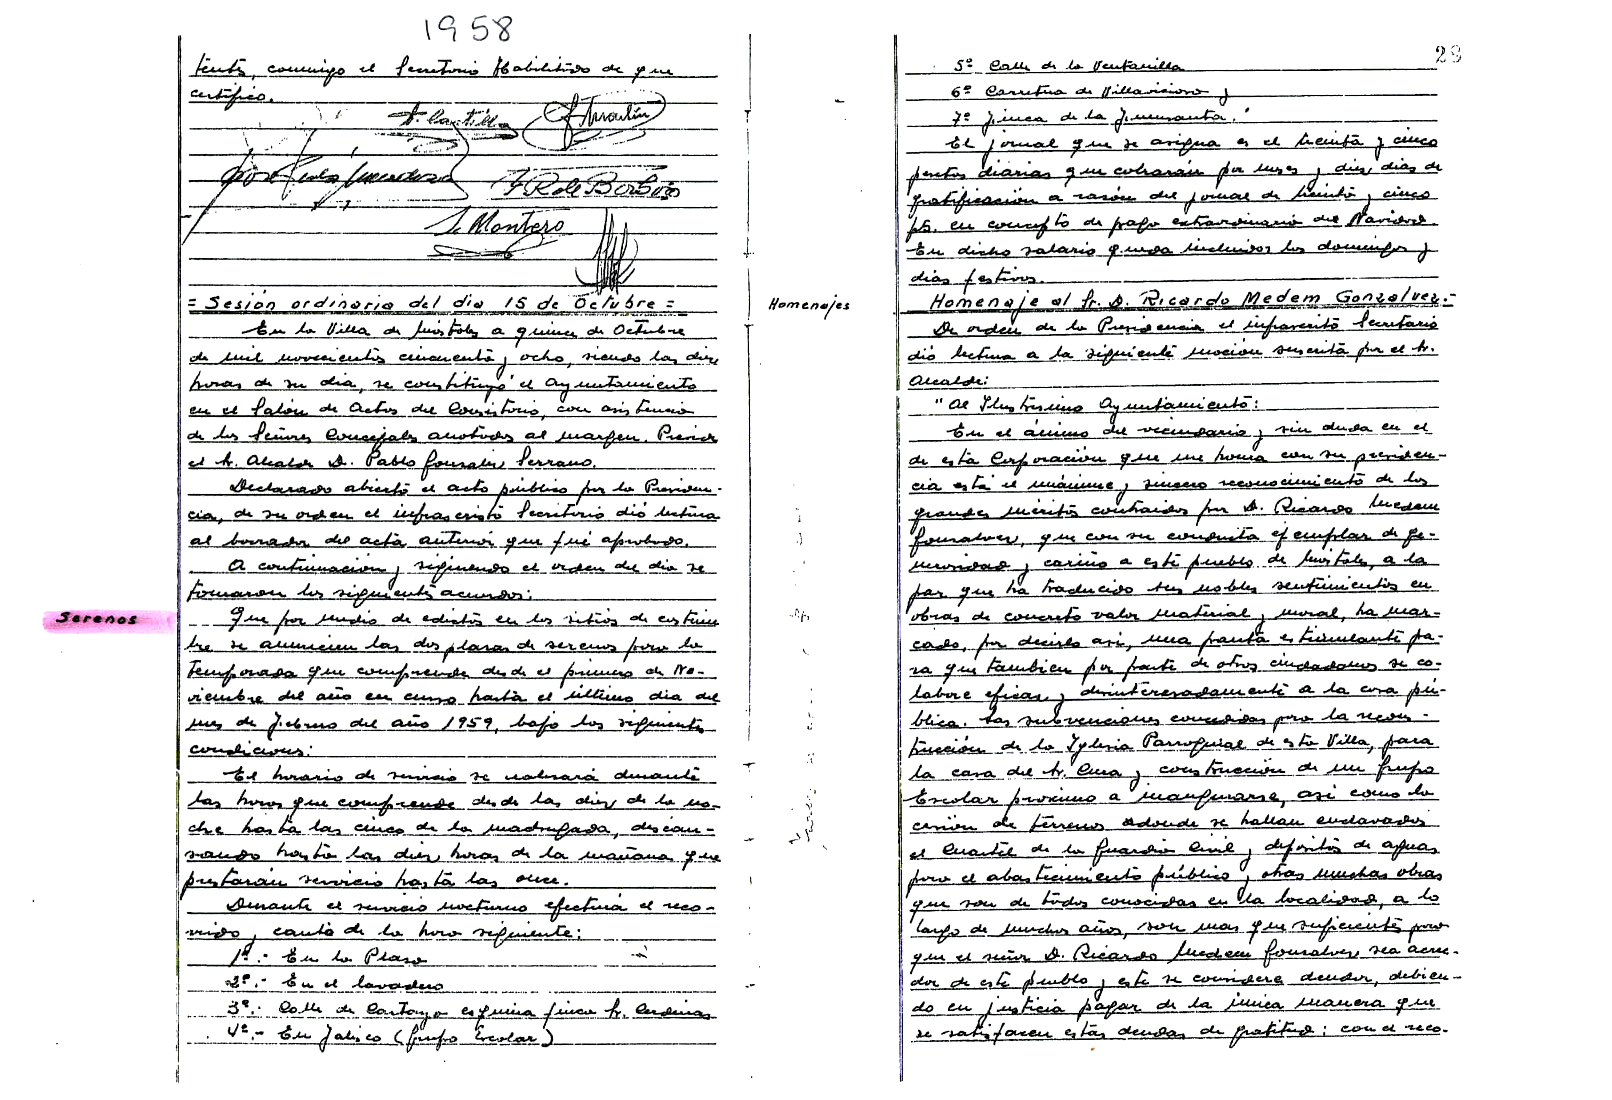 1958
tentes, conmigo el Secretario Habilitado de que
certifico.
A. Castilla
J. Martín
F. R. de Borbón
S. Montero
= Sesión ordinaria del dia 15 de Octubre =
En la Villa de Móstoles a quince de Octubre
de mil novecientos cincuenta y ocho, siendo las diez
horas de su dia, se constituyó el Ayuntamiento
en el Salón de Actos del Consistorio, con asistencia
de los Señores Concejales anotados al margen. Preside
el Sr. Alcalde D. Pablo González Serrano.
Declarado abierto el acto público por la Presiden-
cia, de su orden el infrascrito Secretario dió lectura
al borrador del acta anterior que fué aprobado.
A continuación y siguiendo el orden del dia se
tomaron los siguientes acuerdos:
Serenos
Que por medio de edictos en los sitios de costum
bre se anuncien las dos plazas de serenos para la
temporada que comprende desde el primero de No-
viembre del año en curso hasta el último dia del
mes de Febrero del año 1959, bajo las siguientes
condiciones:
El horario de servicio se realizará durante
las horas que comprende desde las diez de la no-
che hasta las cinco de la madrugada, descan-
sando hasta las diez horas de la mañana que
prestarán servicio hasta las once.
Durante el servicio nocturno efectuará el reco-
rrido y canto de la hora siguiente:
1º.- En la Plaza
2º.- En el lavadero
3º.- Calle de Cartaya esquina finca Sr. Cardenas
4º.- En Jalisco (Grupo Escolar)
29
5º Calle de la Ventanilla
6º Carretera de Villaviciosa y
7º Finca de la Fumusanta."
El jornal que se asigna es el treinta y cinco
pesetas diarias que cobrarán por meses y diez dias de
gratificación a razón del jornal de treinta y cinco
pts. en concepto de pago extraordinario de Navidad.
En dicho salario queda incluidos los domingos y
dias festivos.
Homenajes
Homenaje al Sr. D. Ricardo Medem Gonzalvez:-
De orden de la Presidencia el infrascrito Secretario
dió lectura a la siguiente moción suscrita por el Sr.
Alcalde:
"Al Ilustrisimo Ayuntamiento:
En el ánimo del vecindario y sin duda en el
de esta Corporación que me honra con su presiden-
cia está el unánime y sincero reconocimiento de los
grandes méritos contraidos por D. Ricardo Medem
Gonzalvez, que con su conducta ejemplar de ge-
nerosidad y cariño a este pueblo de Móstoles, a la
par que ha traducido sus nobles sentimientos en
obras de concreto valor material y moral, ha mar-
cado, por decirlo asi, una pauta estimulante pa-
ra que tambien por parte de otros ciudadanos se co-
labore eficaz y desinteresadamente a la cosa pú-
blica. Las subvenciones concedidas para la recons-
trucción de la Iglesia Parroquial de esta Villa, para
la casa del Sr. Cura y construcción de un Grupo
Escolar proximo a inaugurarse, asi como la
cesión de terrenos adonde se hallan enclavados
el Cuartel de la Guardia Civil y depósito de aguas
para el abastecimiento público y otras muchas obras
que son de todos conocidas en la localidad, a lo
largo de muchos años, son mas que suficientes para
que el señor D. Ricardo Medem Gonzalvez sea acree-
dor de este pueblo y este se considere deudor, debien-
do en justicia pagar de la única manera que
se satisfacen estas deudas de gratitud: con el reco-